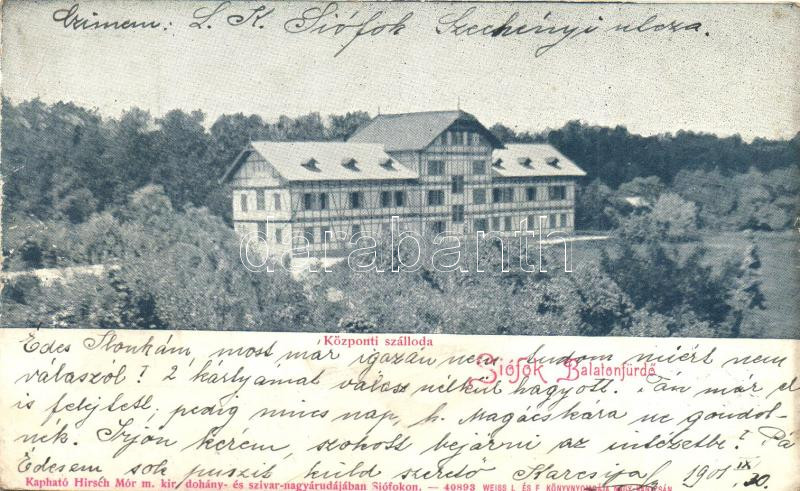 Czimem: L. K. Siófok Szechényi utcza.
darabanth
Központi szálloda
Siófok Balatonfürdő
Édes Ilonkám, most már igazán nem tudom miért nem
válaszól? 2 kártyámat válasz nélkül hagyott. Tán már el
is felejtett, pedig nincs nap, h. Magácskára ne gondol-
nék. Írjon kérem, szokott bejárni az intézetbe? Pá
Édesem sok puszit küld szerető Karcsija 1901 IX 20.
Kapható Hirsch Mór m. kir. dohány- és szivar-nagyárudájában Siófokon. — 40893 WEISS L. ÉS F. KÖNYVNYOMDÁJA